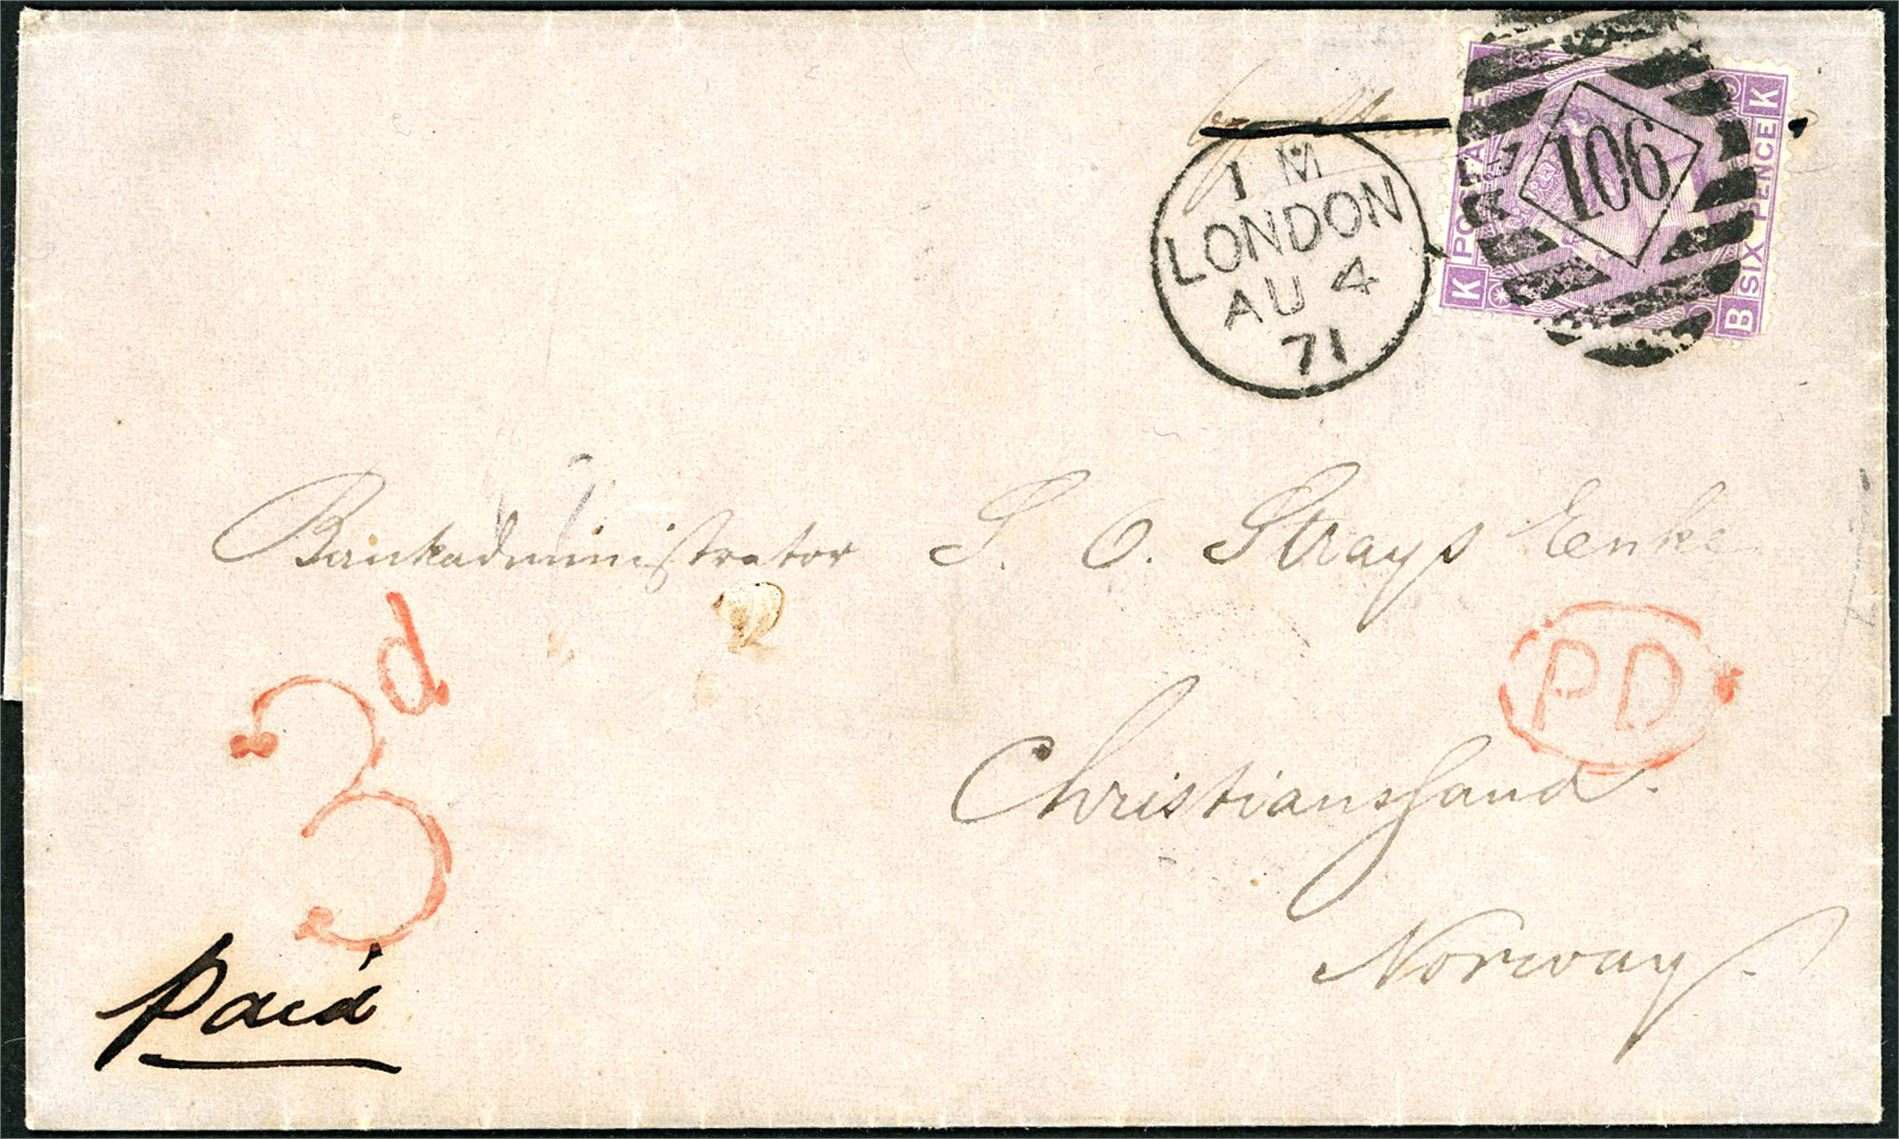 1 M
LONDON
AU 4
71
106
K
POSTAGE
K
SIX PENCE
B
Bankadministrator S. O. Strays Enke
3d
PD
Christianssand.
Norway.
Paid